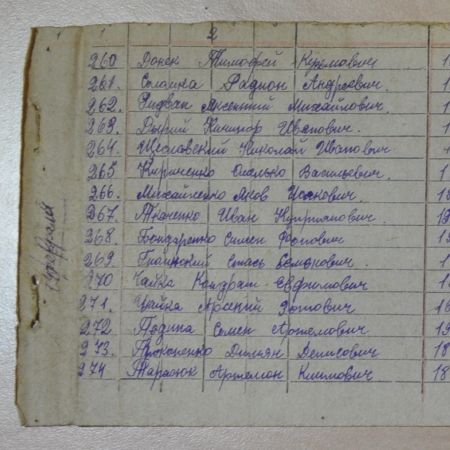 1 2
260 Донек Тимофей Кузьмович 1
261. Солошка Радион Андреевич. 1
262. Михайлович. 1
263. Дыкий Никифор Иванович. 1
264. Николай Иванович 1
265 Кириченко Василькевич. 1
266. Михайленко Яков Иванович. 18
267. Ткаченко Иван Куприанович. 19
268. Бондаренко Симен Фотович 1
269. Стась Семенович. 1
270 Чайка Кондрат Евфимович 1
271. Чайка Арсений Фотович 18
272 Педина Семен Артемович 19
273. Прокопенко Димьян Денисович 18
274 Тарасюк Артемон Климович 18